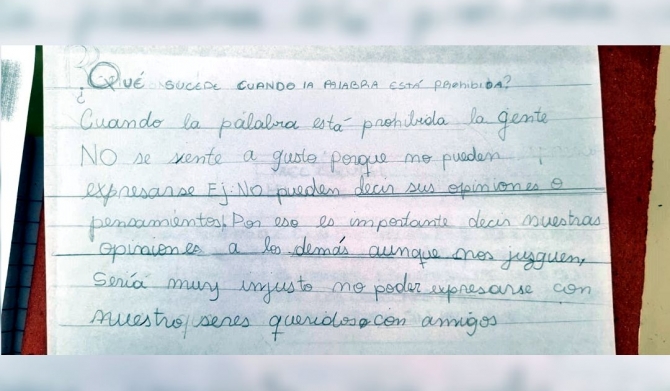 ¿QUÉ SUCEDE CUANDO LA PALABRA ESTÁ PROHIBIDA?
Cuando la pálalbra está prohibida la gente
NO se siente a gusto porque no pueden
expresarse Ej: No pueden decir sus opiniones o
pensamientos, Por eso es importante decir nuestras
opiniones a los demás aunque nos juzguen,
Sería muy injusto no poder expresarse con
nuestro seres queridos o con amigos